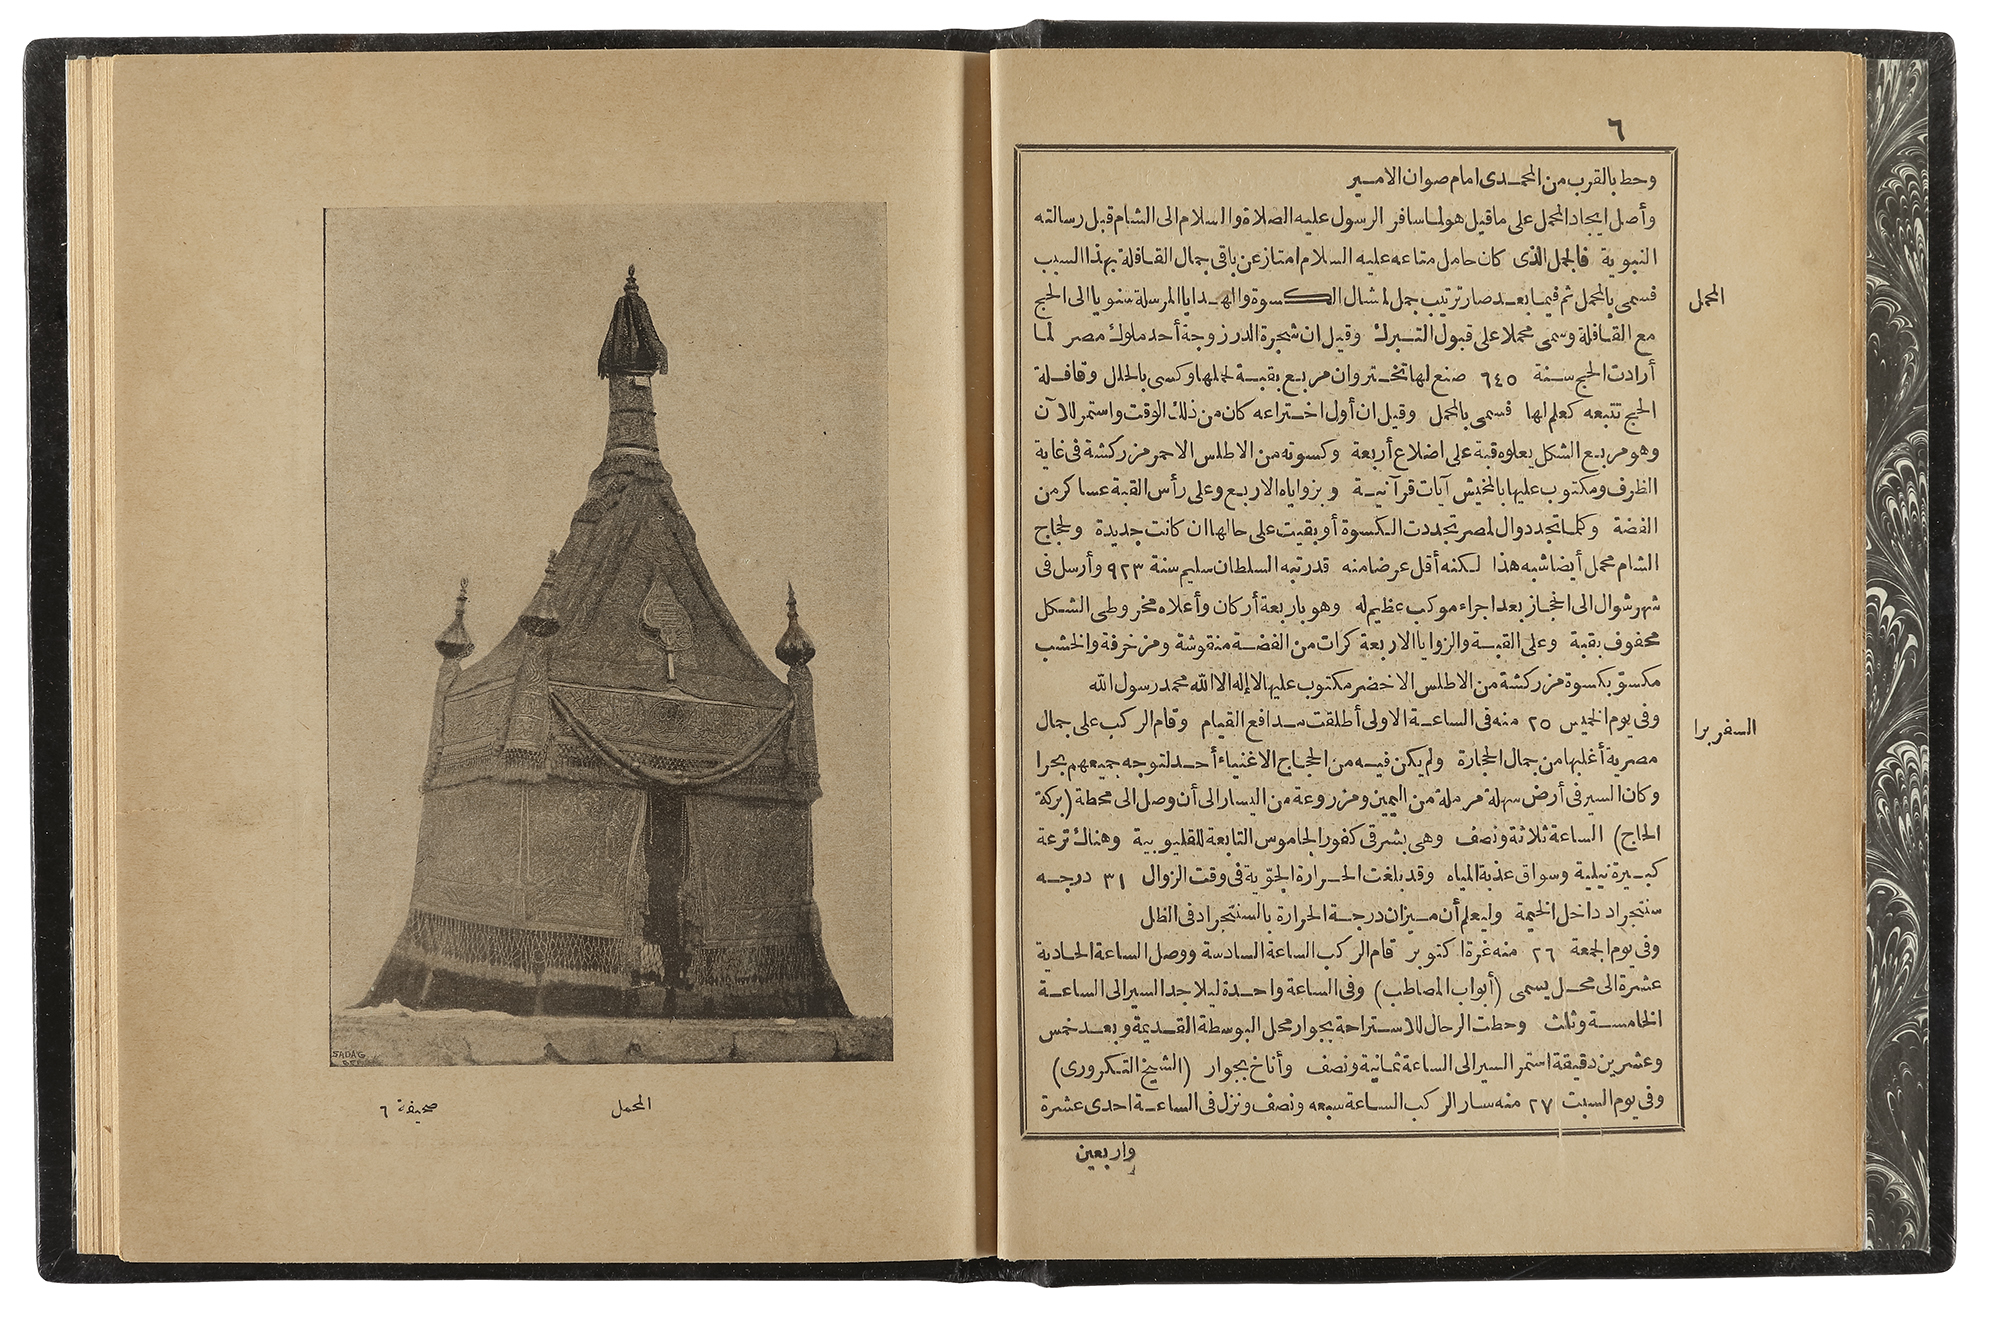 ٦
وحط بالقرب من المحمدى امام صوان الامير
وأصل ايجاد المحمل على ماقيل هو لما سافر الرسول عليه الصلاة والسلام الى الشام قبل رسالته
النبوية فالجمل الذى كان حامل متاعه عليه السلام امتاز عن باقى جمال القافلة بهذا السبب
المحمل
فسمى بالمحمل ثم فيما بعد صار ترتيب جمل لمشال الكسوة والهدايا المرسلة سنويا الى الحج
مع القافلة وسمى محملا على قبول التبرك وقيل ان شجرة الدر زوجة أحد ملوك مصر لما
أرادت الحج سنة ٦٤٥ صنع لها تختروان مربع بقبة لجملها وكسى بالحلل وقافلة
الحج تتبعه كعلم لها فسمى بالمحمل وقيل ان أول اختراعه كان من ذلك الوقت واستمر للآن
وهو مربع الشكل يعلوه قبة على اضلاع أربعة وكسوته من الاطلس الاحمر مزركشة فى غاية
الظرف ومكتوب عليها بالمخيش آيات قرآنية وبزواياه الاربع وعلى رأس القبة عساكر من
الفضة وكلما تجدد وال لمصر تجددت الكسوة أو بقيت على حالها ان كانت جديدة ولحجاج
الشام محمل أيضا شبه هذا لكنه أقل عرضا منه قد رتبه السلطان سليم سنة ٩٢٣ وأرسل فى
شهر شوال الى الحجاز بعد اجراء موكب عظيم له وهو باربعة أركان وأعلاه مخروطى الشكل
محفوف بقبة وعلى القبة والزوايا الاربعة كرات من الفضة منقوشة ومزخرفة والخشب
مكسوّ بكسوة مزركشة من الاطلس الاخضر مكتوب عليها لا إله الا الله محمد رسول الله
السفر برا
وفى يوم الخميس ٢٥ منه فى الساعة الاولى أطلقت مدافع القيام وقام الركب على جمال
مصرية أغلبها من جمال الحجارة ولم يكن فيه من الحجاج الاغنياء أحد لتوجه جميعهم بحرا
وكان السير فى أرض سهلة مرملة من اليمين ومزروعة من اليسار الى أن وصل الى محطة (بركة
الحاج) الساعة ثلاثة ونصف وهى بشرقى كفور الجاموس التابعة للقليوبية وهناك ترعة
كبيرة نيلية وسواق عذبة المياه وقد بلغت الحرارة الجوّية فى وقت الزوال ٣١ درجه
سنتجراد داخل الخيمة وليعلم أن ميزان درجة الحرارة بالسنتجراد فى الظل
وفى يوم الجمعة ٢٦ منه غرة اكتوبر قام الركب الساعة السادسة ووصل الساعة الحادية
عشرة الى محل يسمى (أبواب المصاطب) وفى الساعة واحدة ليلا جد السير الى الساعة
الخامسة وثلث وحطت الرحال للاستراحة بجوار محل البوسطة القديمة وبعد خمس
وعشرين دقيقة استمر السير الى الساعة ثمانية ونصف وأناخ بجوار (الشيخ التكرورى)
وفى يوم السبت ٢٧ منه سار الركب الساعة سبعه ونصف ونزل فى الساعة احدى عشرة
واربعين
SADAG
المحمل
صحيفة ٦